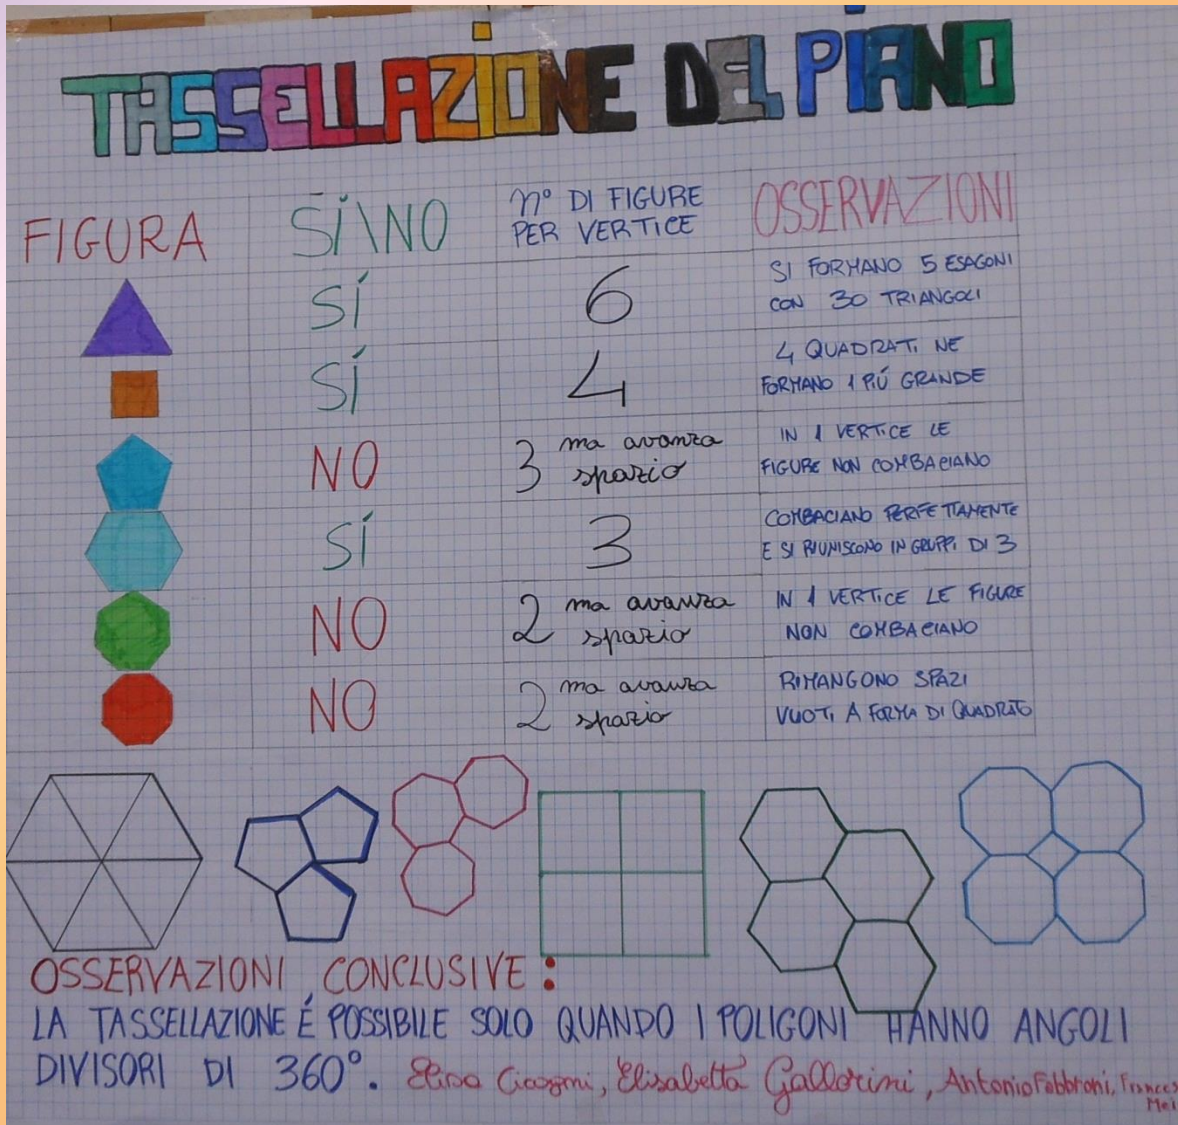 TASSELLAZIONE DEL PIANO
FIGURA
SÌ\NO
n° DI FIGURE
PER VERTICE
OSSERVAZIONI
SÍ
6
SI FORMANO 5 ESAGONI
CON 30 TRIANGOLI
SÍ
4
4 QUADRATI NE
FORMANO 1 PIÚ GRANDE
NO
3 ma avanza
spazio
IN 1 VERTICE LE
FIGURE NON COMBACIANO
SÍ
3
COMBACIANO PERFETTAMENTE
E SI RIUNISCONO IN GRUPPI DI 3
NO
2 ma avanza
spazio
IN 1 VERTICE LE FIGURE
NON COMBACIANO
NO
2 ma avanza
spazio
RIMANGONO SPAZI
VUOTI A FORMA DI QUADRATO
OSSERVAZIONI CONCLUSIVE:
LA TASSELLAZIONE É POSSIBILE SOLO QUANDO I POLIGONI HANNO ANGOLI
DIVISORI DI 360°. Elisabetta Gallorini, Antonio Fabbroni,